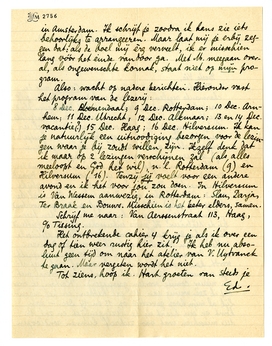 2756
in Amsterdam. Ik schrijf je zoodra ik kans zie iets
behoorlijks te arrangeeren. Maar laat mij je erbij zeg-
gen dat, als de boel mij erg verveelt, ik er misschien
lang vóór het einde vandoor ga. Met M. meegaan over-
al, als ongewenschte kornak, staat niet op mijn pro-
gram.
Also: wacht op nadere berichten. Hieronder vast
het program van de lezerij:
8 Dec. Roosendaal; 9 Dec. Rotterdam; 10 Dec. Arn-
hem; 11 Dec. Utrecht; 12 Dec. Alkmaar; 13 en 14 Dec.
vacantie(?) 15 Dec. Haag; 16 Dec. Hilversum. Ik kan
je natuurlijk een uitnoodiging bezorgen voor de lezin-
gen waar je bij zoudt willen zijn. Ikzelf denk dat
ik maar op 2 lezingen verschijnen zal (als alles
meeloopt en God het wil), n.l. Rotterdam (9) en
Hilversum (16). Tenzij voelt voor een andere
avond en ik het voor jou zou doen. In Hilversum
is Van Wessem aanwezig, in Rotterdam: Slau, Zarja,
Ter Braak en Bouws. Misschien is het beter elders, samen.
Schrijf me naar: Van Aerssenstraat 113, Haag,
p/a Tissing.
Het ontbrekende cahier krijg je als ik over een
dag of tien weer rustig hier zit. Ik heb nu abso-
luut geen tijd om naar het atelier van V. Uytvanck
te gaan. Maar vergeten wordt het niet.
Tot ziens, hoop ik. Hart. groeten van steeds je
Ed.